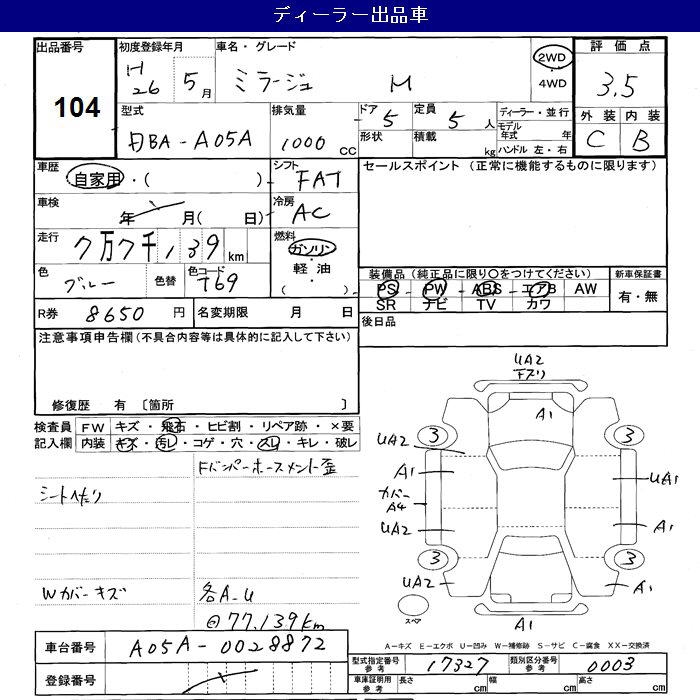 ディーラー出品車
出品番号
104
初度登録年月
H26 5月
車名・グレード
ミラージュ M
2WD
・
4WD
評価点
3.5
外装 内装
C B
型式
DBA-A05A
排気量
1000 cc
ドア 5
定員 5人
形状
積載 kg
ディーラー・並行
モデル年式 年
ハンドル 左・右
車歴
自家用・( )
シフト
FAT
セールスポイント (正常に機能するものに限ります)
車検
年 月( 日)
冷房
AC
走行
7万7千139km
燃料
ガソリン
・
軽油
・
( )
色
ブルー
色替
色コード
T69
装備品 (純正品に限り○をつけてください)
PS PW ABS エアB AW
SR ナビ TV カワ
新車保証書
有・無
R券 8650円
名変期限 月 日
後日品
注意事項申告欄 (不具合内容等は具体的に記入して下さい)
修復歴 有 〔箇所 〕
検査員記入欄
FW キズ・飛石・ヒビ割・リペア跡・×要
内装 キズ・汚レ・コゲ・穴・スレ・キレ・破レ
Fバンパーホースメント歪
シートへたり
Wカバーキズ
各A-U
@77,139km
UA2
下スリ
A1
3
3
UA2
A1
カバー
A4
UA2
UA1
A1
3
3
UA2
A1
スペア
A1
A-キズ E-エクボ U-凹み W-補修跡 S-サビ C-腐食 XX-交換済
車台番号 A05A-0028872
登録番号
型式指定番号 参考 17327
類別区分番号 参考 0003
車庫証明用 参考 長さ cm 幅 cm 高さ cm